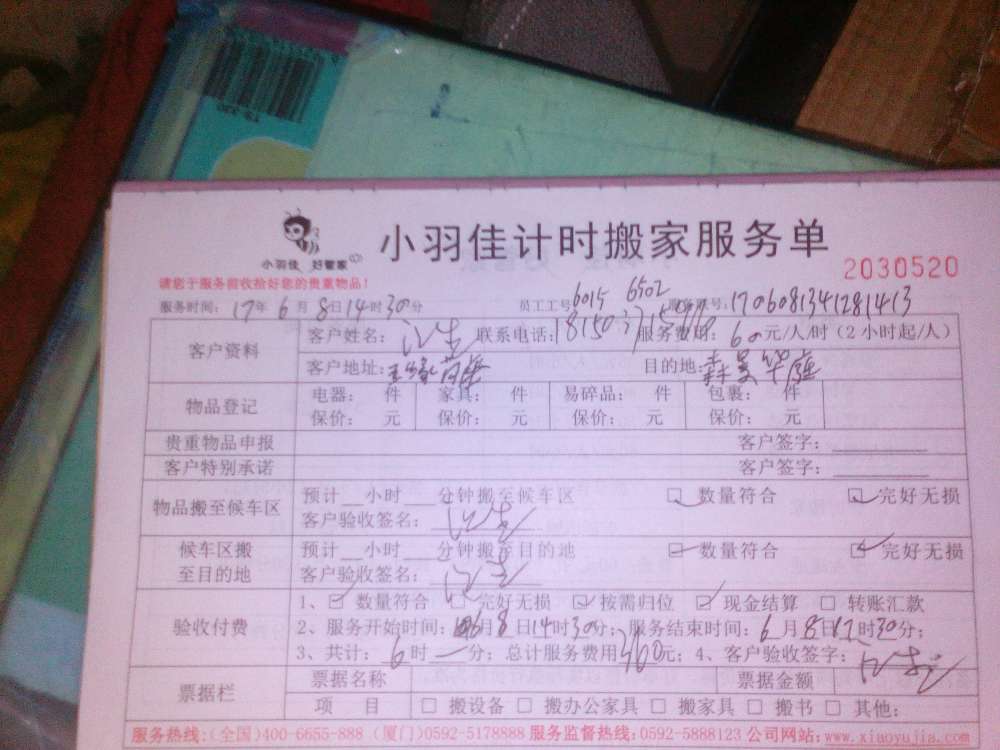 小羽佳计时搬家服务单
小羽佳 好管家
2030520
请您于服务前收拾好您的贵重物品!
服务时间: 17年 6月 8日 14时 30分 员工工号: 6015 6502 170608134128 1413
客户资料 客户姓名: 联系电话: 服务费用: 60元/人/时(2小时起/人)
客户地址: 目的地: 森景华庭
物品登记 电器: 件 家具: 件 易碎品: 件 包裹: 件
保价: 元 保价: 元 保价: 元 保价: 元
贵重物品申报 客户签字:
客户特别承诺 客户签字:
物品搬至候车区 预计__小时___分钟搬至候车区 数量符合 完好无损
客户验收签名:
候车区搬至目的地 预计__小时___分钟搬至目的地 数量符合 完好无损
客户验收签名:
验收付费 1、 数量符合 完好无损 按需归位 现金结算 转账汇款
2、服务开始时间: 6月 8日 14时 30分; 服务结束时间: 6月 8日 17时 30分;
3、共计: 6时 一分; 总计服务费用 360元; 4、客户验收签字:
票据栏 票据名称 票据金额
项 目 搬设备 搬办公家具 搬家具 搬书 其他:
服务热线:(全国)400-6655-888 (厦门)0592-5178888 服务监督热线:0592-5888123 公司网站:www.xiaoyujia.com